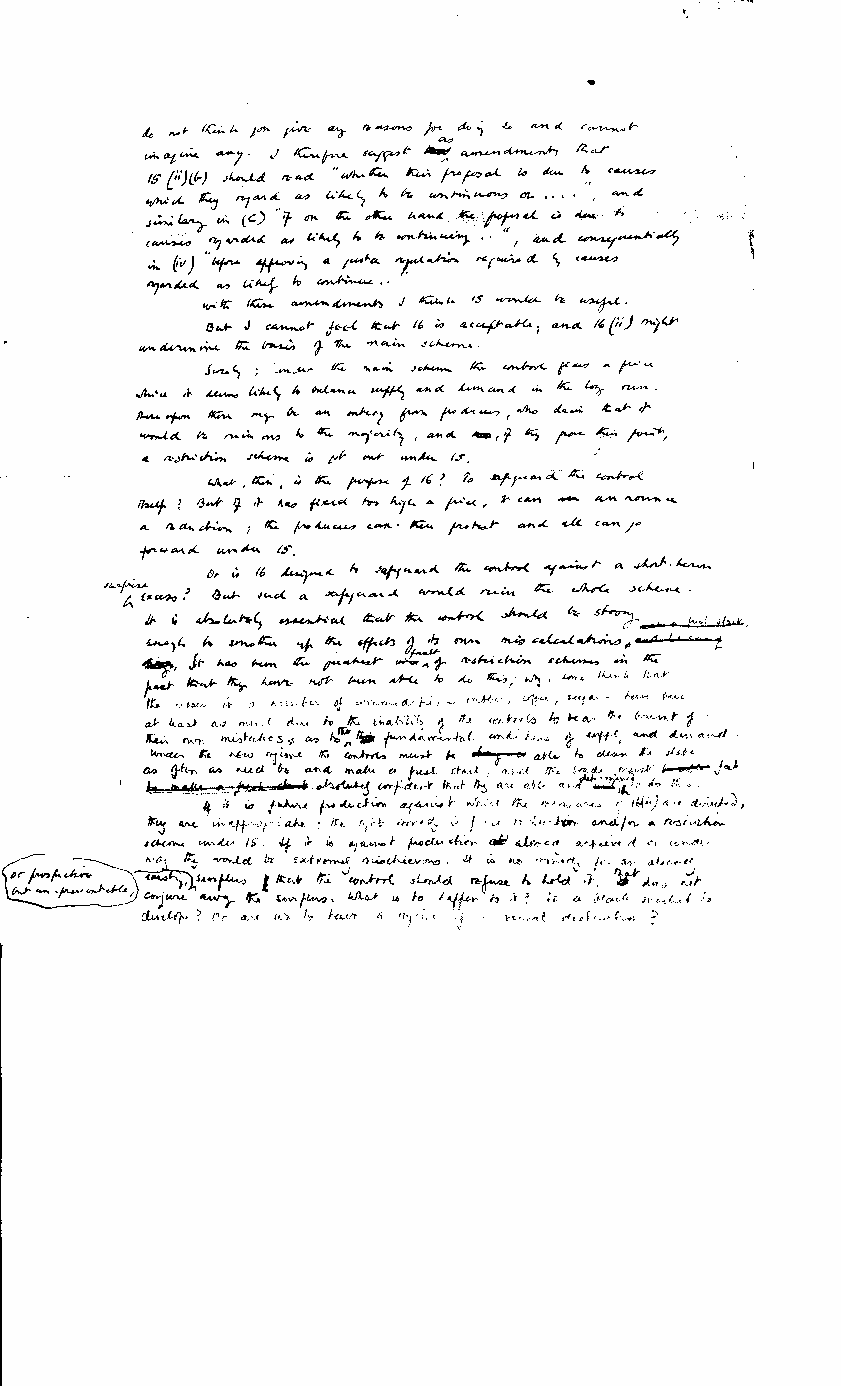 do not think you give any reasons for doing so and cannot
imagine any. I therefore suggest as amendments that
15 (ii)(b) should read "whether their proposal is due to causes
which they regard as likely to be continuous or ....", and
similarly in (c) "if on the other hand the proposal is due to
causes regarded as likely to be continuing ..", and consequentially
in (iv) "before approving a quota regulation required by causes
regarded as likely to continue..
With these amendments I think 15 would be useful.
But I cannot feel that 16 is acceptable; and 16 (ii) might
undermine the basis of the main scheme.
Surely; under the main scheme the control fixes a price
which it deems likely to balance supply and demand in the long run.
Thereupon there may be an outcry from producers, who claim that it
would be ruinous to the majority, and, if they prove their point,
a restriction scheme is put out under 15.
What, then, is the purpose of 16? To safeguard the control
itself? But if it has fixed too high a price, it can announce
a reduction; the producers can then protest and all can go
forward under 15.
Or is 16 designed to safeguard the control against a short-term
surprise
excess? But such a safeguard would ruin the whole scheme.
It is absolutely essential that the control should be strong
enough to smother up the effects of its own miscalculations,
It has been the greatest fault of restriction schemes in the
past that they have not been able to do this; why, some think that
the in a number of commodities - rubber, coffee, sugar - have been
at least as much due to the inability of the controls to bear the brunt of
their own mistakes, as to the fundamental conditions of supply and demand.
Under the new regime the controls must be able to clean the slate
as often as need be and make a fresh start; and the trade must feel
absolutely confident that they are able and determined to do this.
If it is future production against which the measures of 16(ii) are directed,
they are inappropriate; the right remedy is price reduction and/or a restriction
scheme under 15. If it is against production already achieved or under
way they would be extremely mischievous. It is no remedy for an already
or prospective
but un-preventable,
existing surplus that the control should refuse to hold it. That does not
conjure away the surplus. What is to happen to it? Is a black market to
develop? Or are we to have a regime of physical destruction?